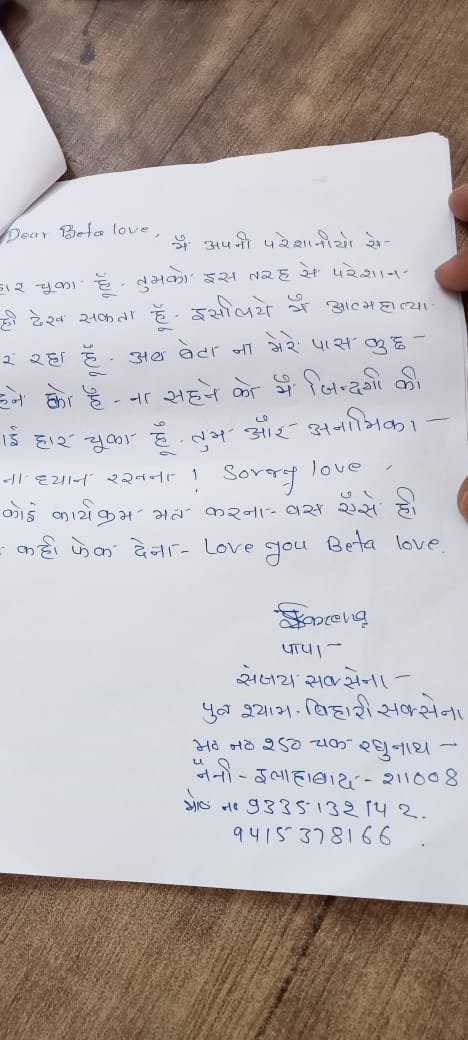 Dear Beta love,
मैं अपनी परेशानीयो से-
हार चूका हूँ. तुमको इस तरह से परेशान-
ही देख सकता हूँ. इसीलिये मैं आत्महात्या
र रहा हूँ. अब बेटा ना मेरे पास कुछ-
हने को है- ना सहने को मैं जिन्दगी की
ाई हार चूका हूँ. तुम और अनामिका-
ना ध्यान रखना! Sorry love.
कोई कार्यक्रम मत करना- बस ऐसे ही
कही फेक देना- Love you Beta love.
पापा-
संजय सक्सेना-
पुत्र श्याम. बिहारी सक्सेना
म० न० 250 चक रघुनाथ-
नैनी- इलाहाबाद- 211008
मो० न० 9335132142.
9415378166.